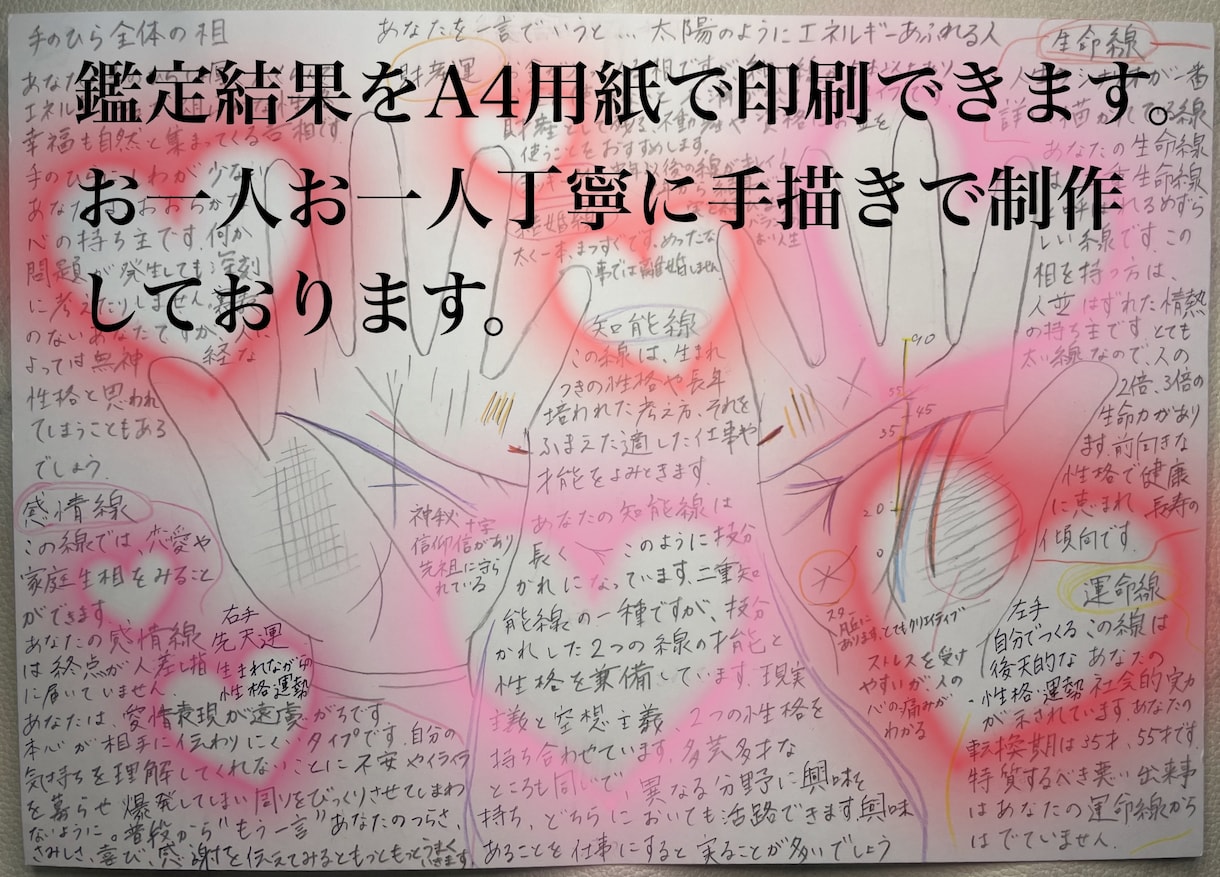 手のひら全体の相
あなたを一言でいうと… 太陽のようにエネルギーあふれる人
鑑定結果をA4用紙で印刷できます。
お一人お一人丁寧に手描きで制作
しております。
エネル
幸福も自然と集まってくる吉相です
手のひら しわが少ない
あな
心の持ち主です。何か
問題が発生しても深刻
に考えたりしません。
のないあなたですが、人に
よっては無神経な
性格と思われ
てしまうこともある
でしょう。
感情線
この線では、恋愛や
家庭生相をみること
ができます。
あなたの感情線
は終点が人差し指
に届いていません。
あなたは、愛情表現が遠慮がちです
本心が相手に伝わりにくいタイプです。自分の
気持ちを理解してくれないことに不安やイライラ
を募らせ爆発してしまい周りをびっくりさせてしまわ
ないように。普段から“もう一言”あなたのつらさ、
さみしさ、喜び、感謝を伝えてみるともっともっとうまく
いきます
右手
先天運
生まれながらの
性格運勢
神秘十字
信仰信があり
先祖に守ら
れている
財運
使うことをおすすめします。
結婚線
太く一本、まっすぐです。めったな
事では離婚しません
知能線
この線は、生まれ
つきの性格や長年
培われた考え方、それを
ふまえた適した仕事や
才能をよみときます。
あなたの知能線は
長く このように枝分
かれになっています。二重知
能線の一種ですが、枝分
かれした2つの線の才能と
性格を兼備しています。現実
主義と空想主義、2つの性格を
持ち合わせています。多芸多才な
ところも同いで、異なる分野に興味を
持ち、どちらにおいても活路できます。興味
あることを仕事にすると実ることが多いでしょう
生命線
が一番
詳 描かれてる線
あなたの生命線
は 生命線
と呼ばれるめずら
しい線です。この
相を持つ方は、
人並はずれた情熱
の持ち主です。とても
太い線なので、人の
2倍、3倍の
生命力があり
ます。前向きな
性格で健康
に恵まれ長寿の
傾向です。
90
55
45
35
20
0
スター
月丘に
あります。とてもクリエイティブ
ストレスを受け
やすいが、人の
心の痛みが
わかる
左手
自分でつくる
後天的な
性格・運勢
運命線
この線は
あなたの
社会的実力
が示されています。あなたの
転換期は35才、55才です
特質するべき悪い出来事
はあなたの運命線から
はでていません。